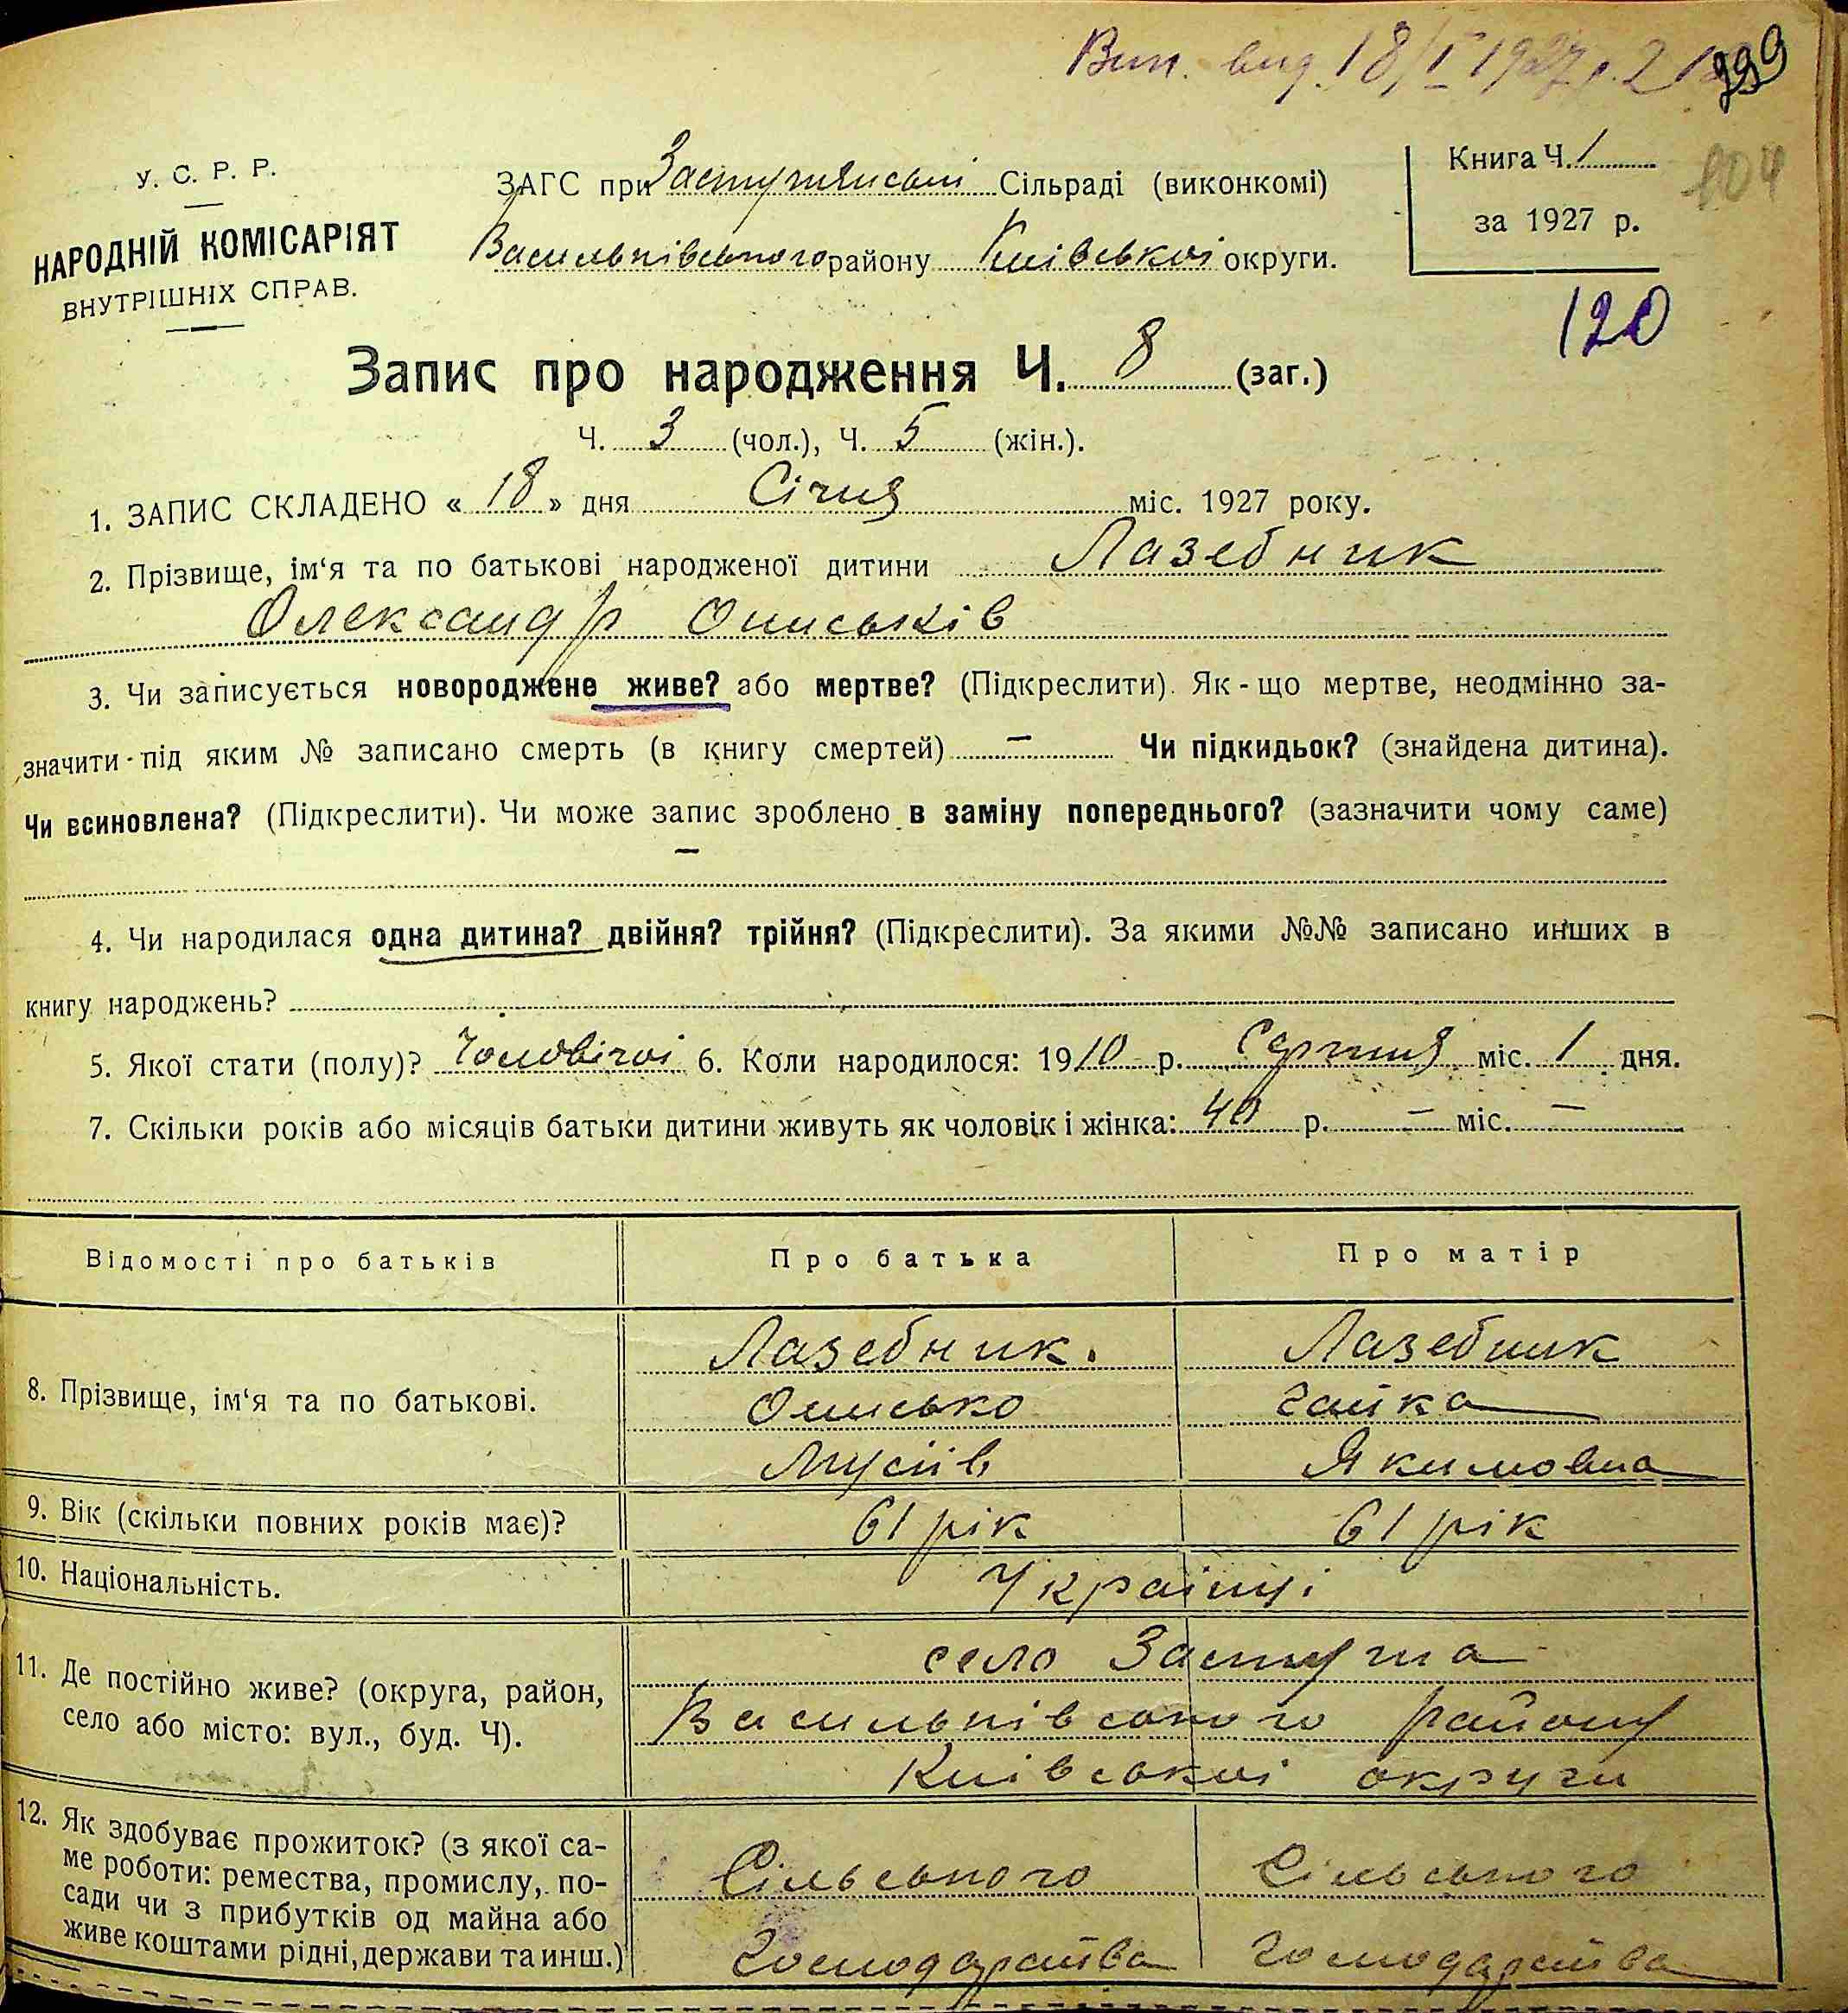 Вип. вид. 18/I 1927 р.
399
У. С. Р. Р.
НАРОДНІЙ КОМІСАРІЯТ
ВНУТРІШНІХ СПРАВ.
ЗАГС при Застугнянській Сільраді (виконкомі)
Васильківського району Київської округи.
Книга Ч. 1
за 1927 р.
104
120
Запис про народження Ч. 8 (заг.)
Ч. 3 (чол.), Ч. 5 (жін.).
1. ЗАПИС СКЛАДЕНО « 18 » дня Січня міс. 1927 року.
2. Прізвище, ім‘я та по батькові народженої дитини Лазебник
Олександр Ониськів
3. Чи записується новороджене живе? або мертве? (Підкреслити). Як-що мертве, неодмінно за-
значити під яким № записано смерть (в книгу смертей) — Чи підкидьок? (знайдена дитина).
Чи всиновлена? (Підкреслити). Чи може запис зроблено в заміну попереднього? (зазначити чому саме)
—
4. Чи народилася одна дитина? двійня? трійня? (Підкреслити). За якими №№ записано инших в
книгу народжень?
5. Якої стати (полу)? Чоловічої 6. Коли народилося: 1910 р. Серпня міс. 1 дня.
7. Скільки років або місяців батьки дитини живуть як чоловік і жінка: 40 р. — міс. —
Відомості про батьків
Про батька
Про матір
8. Прізвище, ім‘я та по батькові.
Лазебник.
Онисько
Мусіїв
Лазебник
Гапка
Якимовна
9. Вік (скільки повних років має)?
61 рік
61 рік
10. Національність.
Українці
11. Де постійно живе? (округа, район,
село або місто: вул., буд. Ч).
село Застугна
Васильківського району
Київської округи
12. Як здобуває прожиток? (з якої са-
ме роботи: ремества, промислу, по-
сади чи з прибутків од майна або
живе коштами рідні, держави та инш.)
Сільського
Господарства
Сільського
Господарства